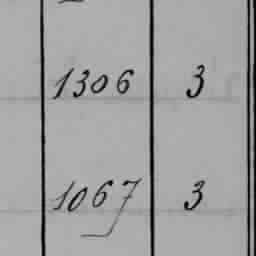 1306 3
1067 3